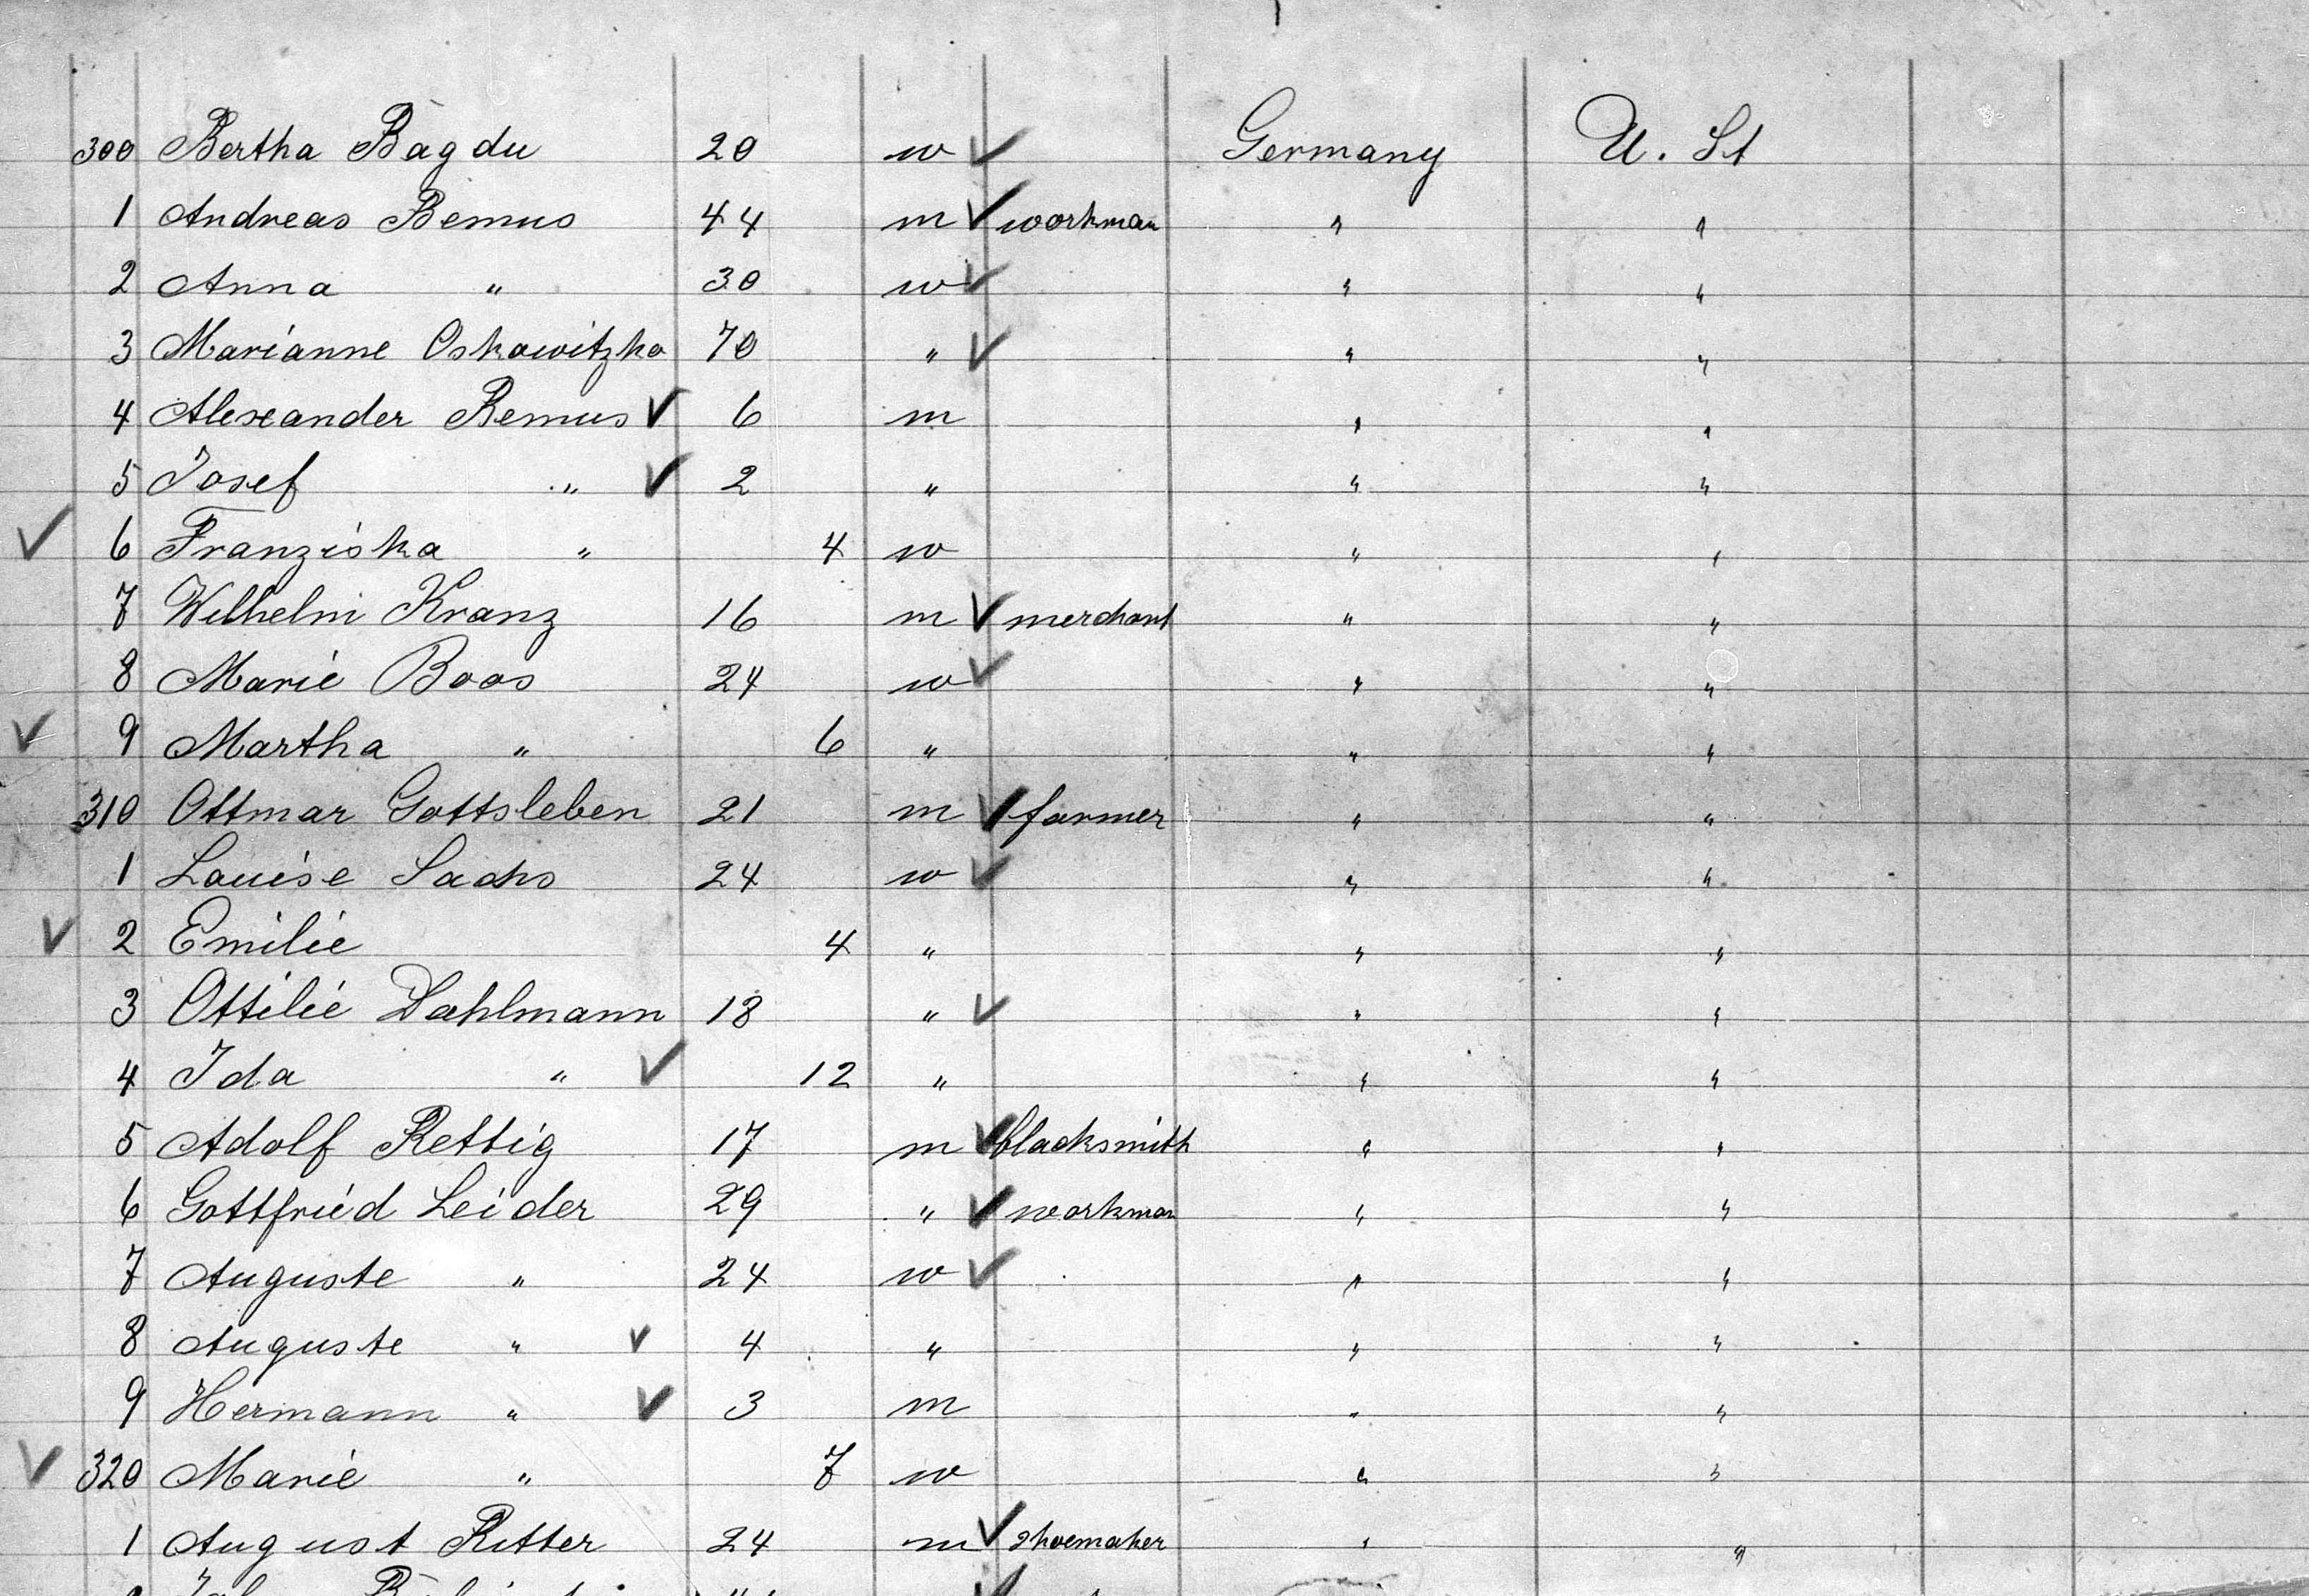 300 Bertha Bagdu 20 w Germany U. St
1 Andreas Remus 44 m workman " "
2 Anna " 30 w " "
3 Marianne Oskowitzka 70 " " "
4 Alexander Remus 6 m " "
5 Josef " 2 " " "
6 Franziska " 4 w " "
7 Wilhelm Kranz 16 m merchant " "
8 Marie Boos 24 w " "
9 Martha " 6 " " "
310 Ottmar Gottsleben 21 m farmer " "
1 Louise Sachs 24 w " "
2 Emilie 4 " " "
3 Ottilie Dahlmann 18 " " "
4 Ida " 12 " " "
5 Adolf Rettig 17 m blacksmith " "
6 Gottfried Leider 29 " workman " "
7 Auguste " 24 w " "
8 Auguste " 4 " " "
9 Hermann " 3 m " "
320 Marie " 7 w " "
1 August Ritter 24 m shoemaker " "